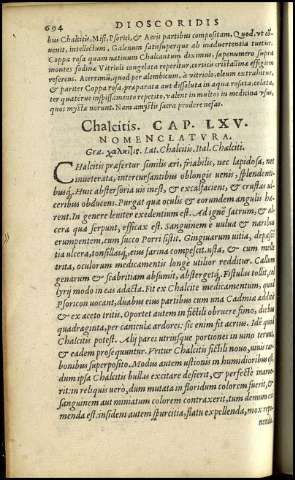 694 DIOSCORIDIS
bus Chalcitis, Misi, Psorici, & Aeris partibus compositam. Quod, ut
uenit, intellectum, Galenum satis superque ab inaduertentia tuetur.
Coppa rosa quam natiuum Chalcantum diximus, sapenumero supra
montes sodina Vitrioli congelata reperitur, ceruio cristallina effigiem
referens. Acerrimũ, quod per alembicum, à vitriolo, oleum extrahitur,
& pariter Coppa rosa, præparata aut dissoluta in aqua rosata, celebri
ter quaterue inspissamento repetito, valent in multos in medicina usus,
quos mysta norunt. Nam amystis sacra prodere nefas.
Chalcitis. CAP. LXV.
NOMENCLATVRA.
Græ. χαλκῖτις. Lat. Chalcitis. Ital. Chalciti.
CHalcitis præfertur similis æri, friabilis, nec lapidosa, nec
inueterata, intercursantibus oblongis uenis, splendenti-
busq́;. Huic abstersoria uis inest, & excalfaciens, & crustas ul-
ceribus obducens. Purgat quæ oculis & eorundem angulis hæ-
rent. In genere leniter exedentium est. Ad ignẽ sacrum, & ul-
cera quæ serpunt, efficax est. Sanguinem è uulua & naribus
erumpentem, cum succo Porri sistit. Gingiuarum uitia, depascen-
tia ulcera, tonsillasq́;, eius farina compescit. usta, & cum melle
trita, oculorum medicamentis longe utilior redditur. Callum
genarum & scabritiam absumit, abstergetq́;. Fistulas tollit, col-
lyrij modo in eas adacta. Fit ex Chalcite medicamentum, quod
Psoricon uocant, duabus eius partibus cum una Cadmiæ additis
& ex aceto tritis. Oportet autem in fictili obruere fimo, diebus
quadraginta, per caniculæ ardores: sic enim fit acrius. Idẽ quod
Chalcitis potest. Alij pares utriusque portiones in uino terunt,
& eadem prosequuntur. Vritur Chalcitis fictili nouo, uiuis car-
bonibus superposito. Modus autem ustionis in humidioribus est,
dum ipsa Chalcitis bullas excitare desierit, & perfectè inarue-
rit: in reliquis uero, dum mutata in floridum colorem fuerit, &
sanguinem aut minimatum colorem contraxerit, tum demum exi-
menda est. insidens autem spurcitia, flatu expellenda, mox repo-
nenda